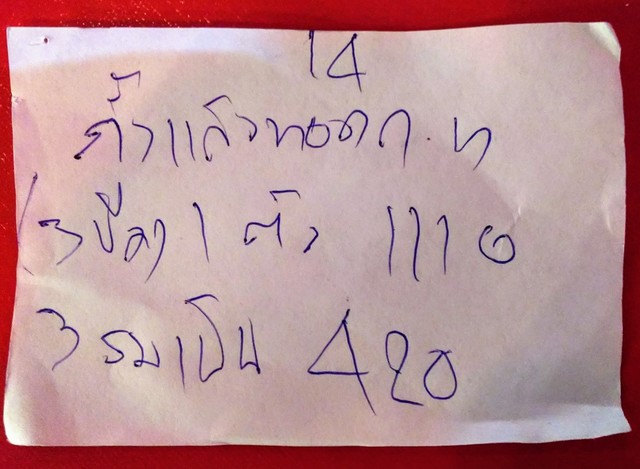 14
กั้งแล้วทอด ก.ท
3 ขีด 1 ตัว 1110
3 รมเป็น 420